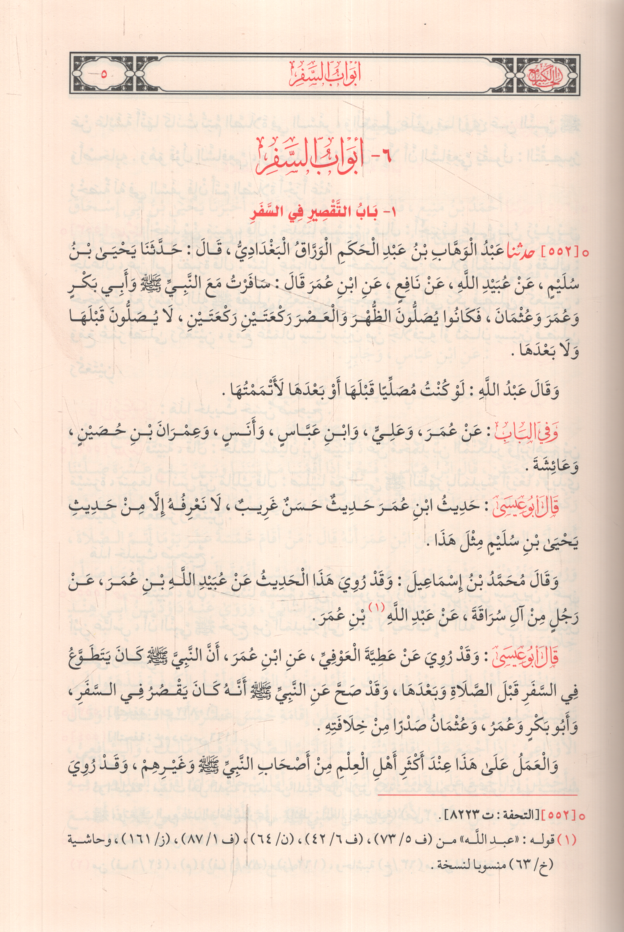 الجامع الكبير
أبواب السفر
٥
٦- أبواب السفر
١- بَابُ التَّقْصِيرِ فِي السَّفَرِ
٥ [٥٥٢] حدثنا عَبْدُ الْوَهَّابِ بْنُ عَبْدِ الْحَكَمِ الْوَرَّاقُ الْبَغْدَادِيُّ ، قَالَ : حَدَّثَنَا يَحْيَىٰ بْنُ
سُلَيْمٍ ، عَنْ عُبَيْدِ اللَّهِ ، عَنْ نَافِعٍ ، عَنِ ابْنِ عُمَرَ قَالَ : سَافَرْتُ مَعَ النَّبِيِّ ﷺ وَأَبِي بَكْرٍ
وَعُمَرَ وَعُثْمَانَ ، فَكَانُوا يُصَلُّونَ الظُّهْرَ وَالْعَصْرَ رَكْعَتَيْنِ رَكْعَتَيْنِ ، لَا يُصَلُّونَ قَبْلَهَا
وَلَا بَعْدَهَا .
وَقَالَ عَبْدُ اللَّهِ : لَوْ كُنْتُ مُصَلِّيًا قَبْلَهَا أَوْ بَعْدَهَا لَأَتْمَمْتُهَا .
وَفِي الْبَابِ : عَنْ عُمَرَ ، وَعَلِيٍّ ، وَابْنِ عَبَّاسٍ ، وَأَنَسٍ ، وَعِمْرَانَ بْنِ حُصَيْنٍ ،
وَعَائِشَةَ .
قَالَ أَبُو عِيسَىٰ : حَدِيثُ ابْنِ عُمَرَ حَدِيثٌ حَسَنٌ غَرِيبٌ ، لَا نَعْرِفُهُ إِلَّا مِنْ حَدِيثِ
يَحْيَىٰ بْنِ سُلَيْمٍ مِثْلَ هَذَا .
وَقَالَ مُحَمَّدُ بْنُ إِسْمَاعِيلَ : وَقَدْ رُوِيَ هَذَا الْحَدِيثُ عَنْ عُبَيْدِ اللَّهِ بْنِ عُمَرَ ، عَنْ
رَجُلٍ مِنْ آلِ سُرَاقَةَ ، عَنْ عَبْدِ اللَّهِ (١) بْنِ عُمَرَ .
قَالَ أَبُو عِيسَىٰ : وَقَدْ رُوِيَ عَنْ عَطِيَّةَ الْعَوْفِيِّ ، عَنِ ابْنِ عُمَرَ ، أَنَّ النَّبِيَّ ﷺ كَانَ يَتَطَوَّعُ
فِي السَّفَرِ قَبْلَ الصَّلَاةِ وَبَعْدَهَا ، وَقَدْ صَحَّ عَنِ النَّبِيِّ ﷺ أَنَّهُ كَانَ يَقْصُرُ فِي السَّفَرِ ،
وَأَبُو بَكْرٍ وَعُمَرُ ، وَعُثْمَانُ صَدْرًا مِنْ خِلَافَتِهِ .
وَالْعَمَلُ عَلَىٰ هَذَا عِنْدَ أَكْثَرِ أَهْلِ الْعِلْمِ مِنْ أَصْحَابِ النَّبِيِّ ﷺ وَغَيْرِهِمْ ، وَقَدْ رُوِيَ
٥ [٥٥٢] [التحفة : ت ٨٢٢٣] .
(١) قوله : «عبد اللَّه» من (ف ٥/ ٧٣) ، (ف ٦/ ٤٢) ، (ن/ ٦٤) ، (ف ١/ ٨٧) ، (ز/ ١٦١) ، وحاشية
(خ/ ٦٣) منسوبا لنسخة .